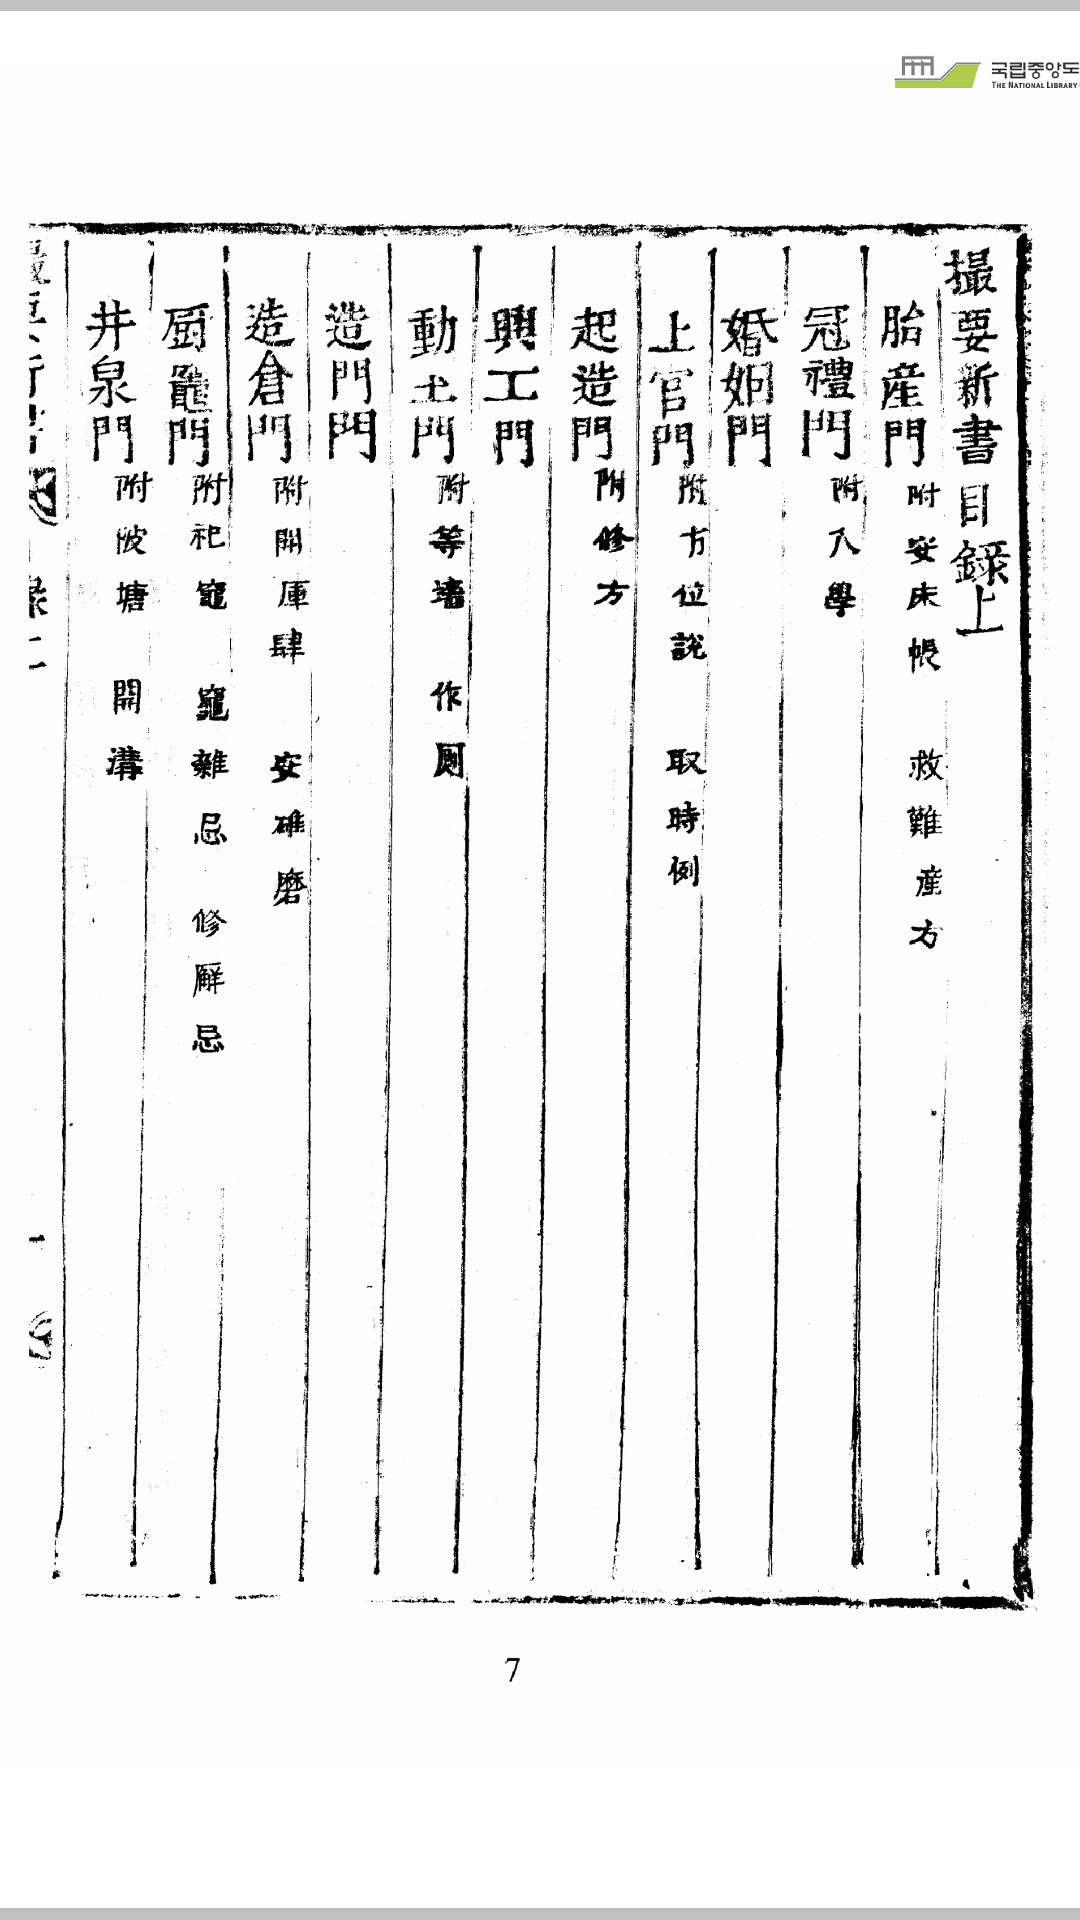 국립중앙도
THE NATIONAL LIBRARY
撮要新書目録上
胎産門 附安床帳 救難産方
冠禮門 附入學
婚姻門
上官門 附方位說 取時例
起造門 附修方
興工門
動土門 附等墻 作厠
造門門
造倉門 附開庫肆 安碓磨
厨竈門 附祀竈 竈雜忌 修廨忌
井泉門 附陂塘 開溝
7